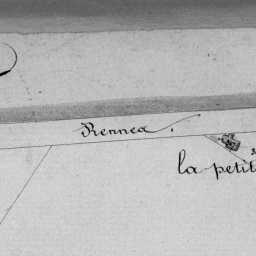 Rennes
la petit